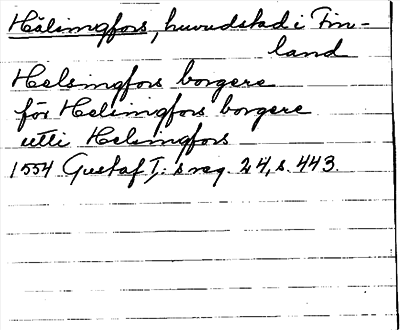 Hälsingfors, huvudstad i Fin-
land
Helsingfors borgere
för Helsingfors borgere
utti Helsingfors
1554 Gustaf I:s reg. 24, s. 443.